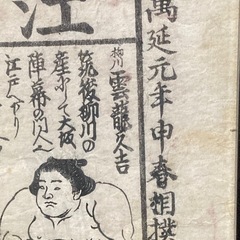 萬延元年申春相撲
江
柳川
雲龍久吉
筑後柳川の
産にして大坂
陣幕の門人
江戸へ下り